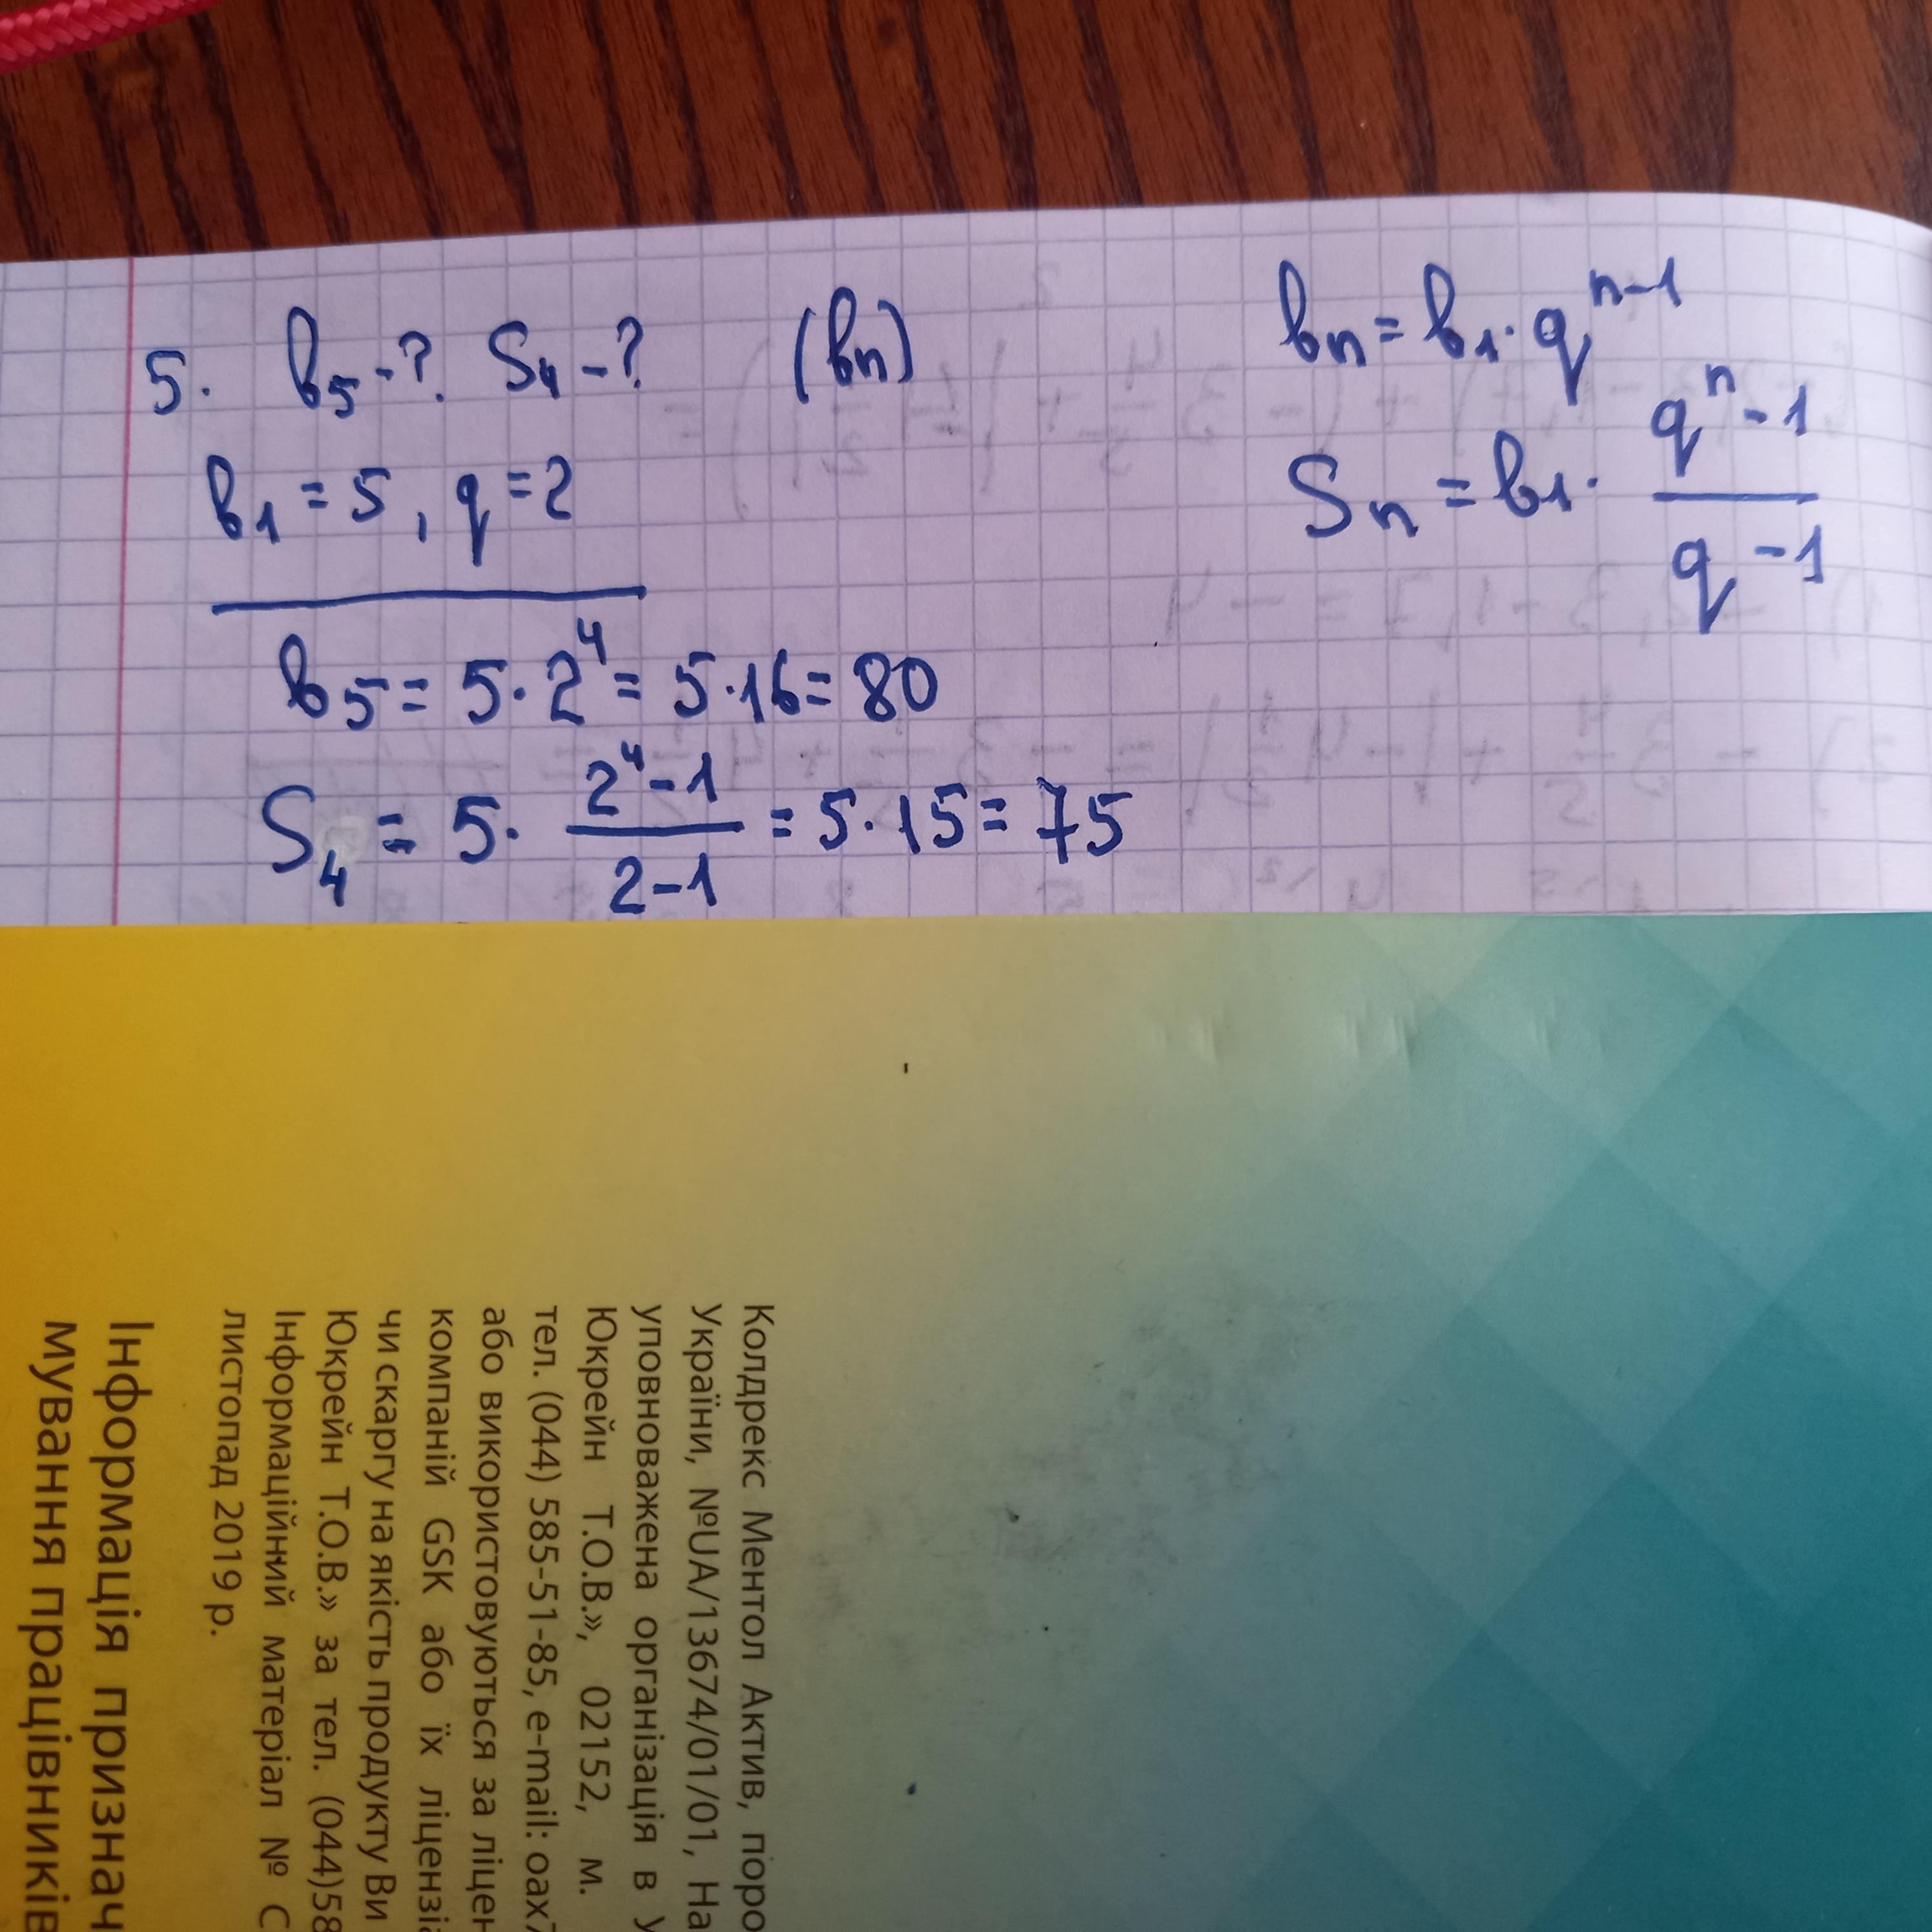 5. b₅-? S₄-? (bₙ)
b₁ = 5, q = 2
bₙ = b₁·qⁿ⁻¹
Sₙ = b₁· (qⁿ-1)/(q-1)
b₅ = 5·2⁴ = 5·16 = 80
S₄ = 5· (2⁴-1)/(2-1) = 5·15 = 75
Колдрекс Ментол Актив, поро
України, №UA/13674/01/01, На
уповноважена організація в У
Юкрейн Т.О.В.», 02152, м.
тел. (044) 585-51-85, e-mail: oax7
або використовуються за ліцен
компаній GSK або їх ліцензіа
чи скаргу на якість продукту Ви
Юкрейн Т.О.В.» за тел. (044)58
Інформаційний матеріал № С
листопад 2019 р.
Інформація признач
мування працівників